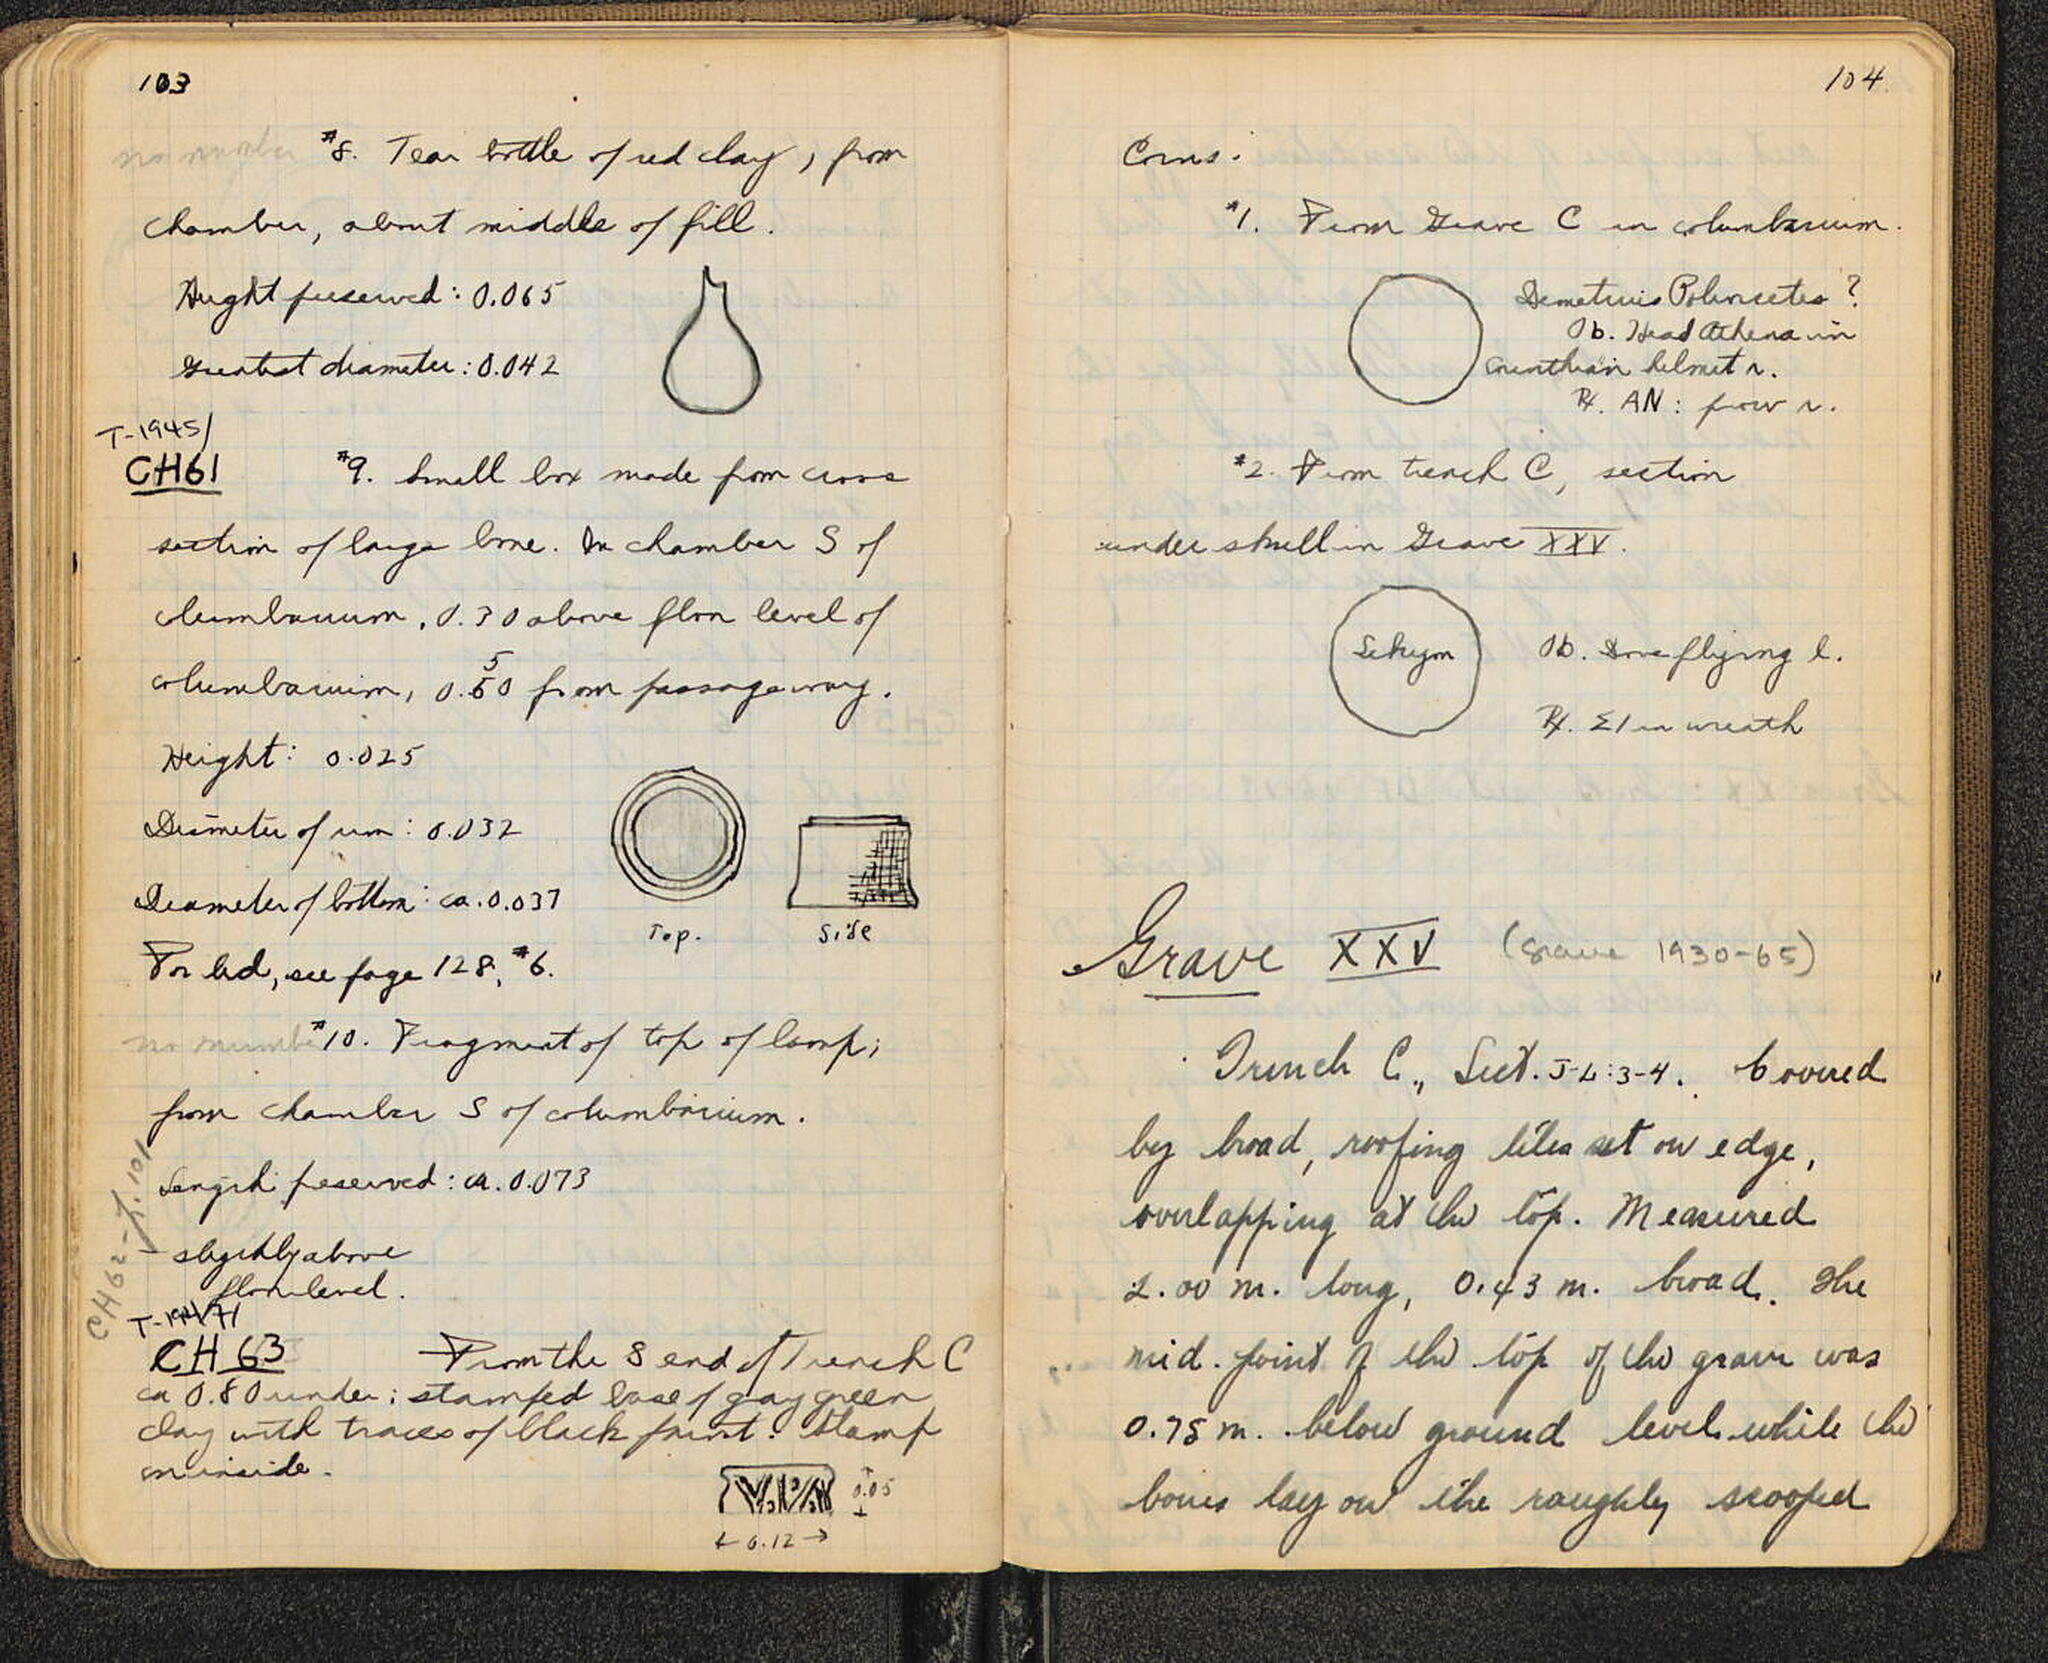 103
no number #8. Tear bottle of red clay, from
chamber, about middle of fill.
Height preserved: 0.065
Greatest diameter: 0.042
T-1945/
CH61
#9. Small box made from cross
section of large bone. In chamber S of
columbarium, 0.30 above floor level of
columbarium, 0.50 from passageway.
5
Height: 0.025
Diameter of rim: 0.032
Diameter of bottom: ca. 0.037
Top. Side
For lid, see page 128, #6.
no number #10. Fragment of top of lamp;
from chamber S of columbarium.
Length preserved: ca. 0.073
- slightly above
floor level.
CH62-
CH 63
From the S end of Trench C
ca 0.80 under; stamped base of gray green
clay with traces of black paint. Stamp
on inside.
0.05
0.12
104
Coins:
#1. From Grave C in columbarium.
Demetrius Poliorcetes?
Ob. Head Athena in
Corinthian helmet r.
Rx. AN: prow r.
#2. From trench C, section
under skull in Grave XXV.
Sikyon
Ob. Dove flying l.
Rx. ΣΙ in wreath
Grave XXV (Grave 1930-65)
Trench C., Sect. J-L:3-4. Covered
by broad, roofing tiles set on edge,
overlapping at the top. Measured
2.00 m. long, 0.43 m. broad. The
mid. point of the top of the grave was
0.75 m. below ground level while the
bones lay on the roughly scooped